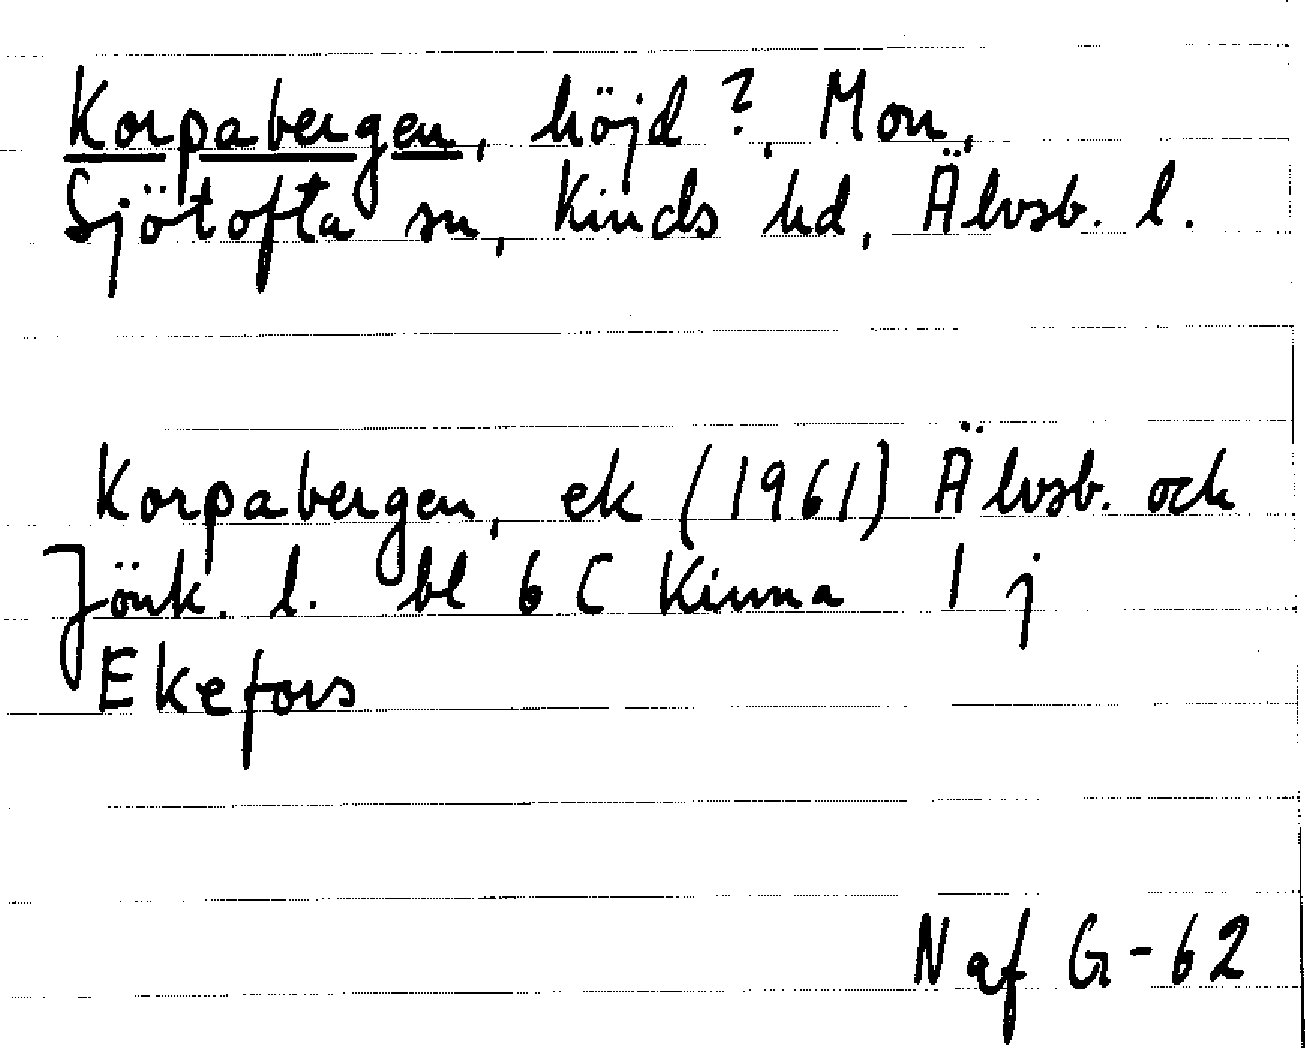 Korpabergen, höjd?, Mon,
Sjötofta sn, Kinds hd, Älvsb. l.
Korpabergen, ek (1961) Älvsb. och
Jönk. l. bl 6 C Kinna 1 j
Ekefors
Naf G-62